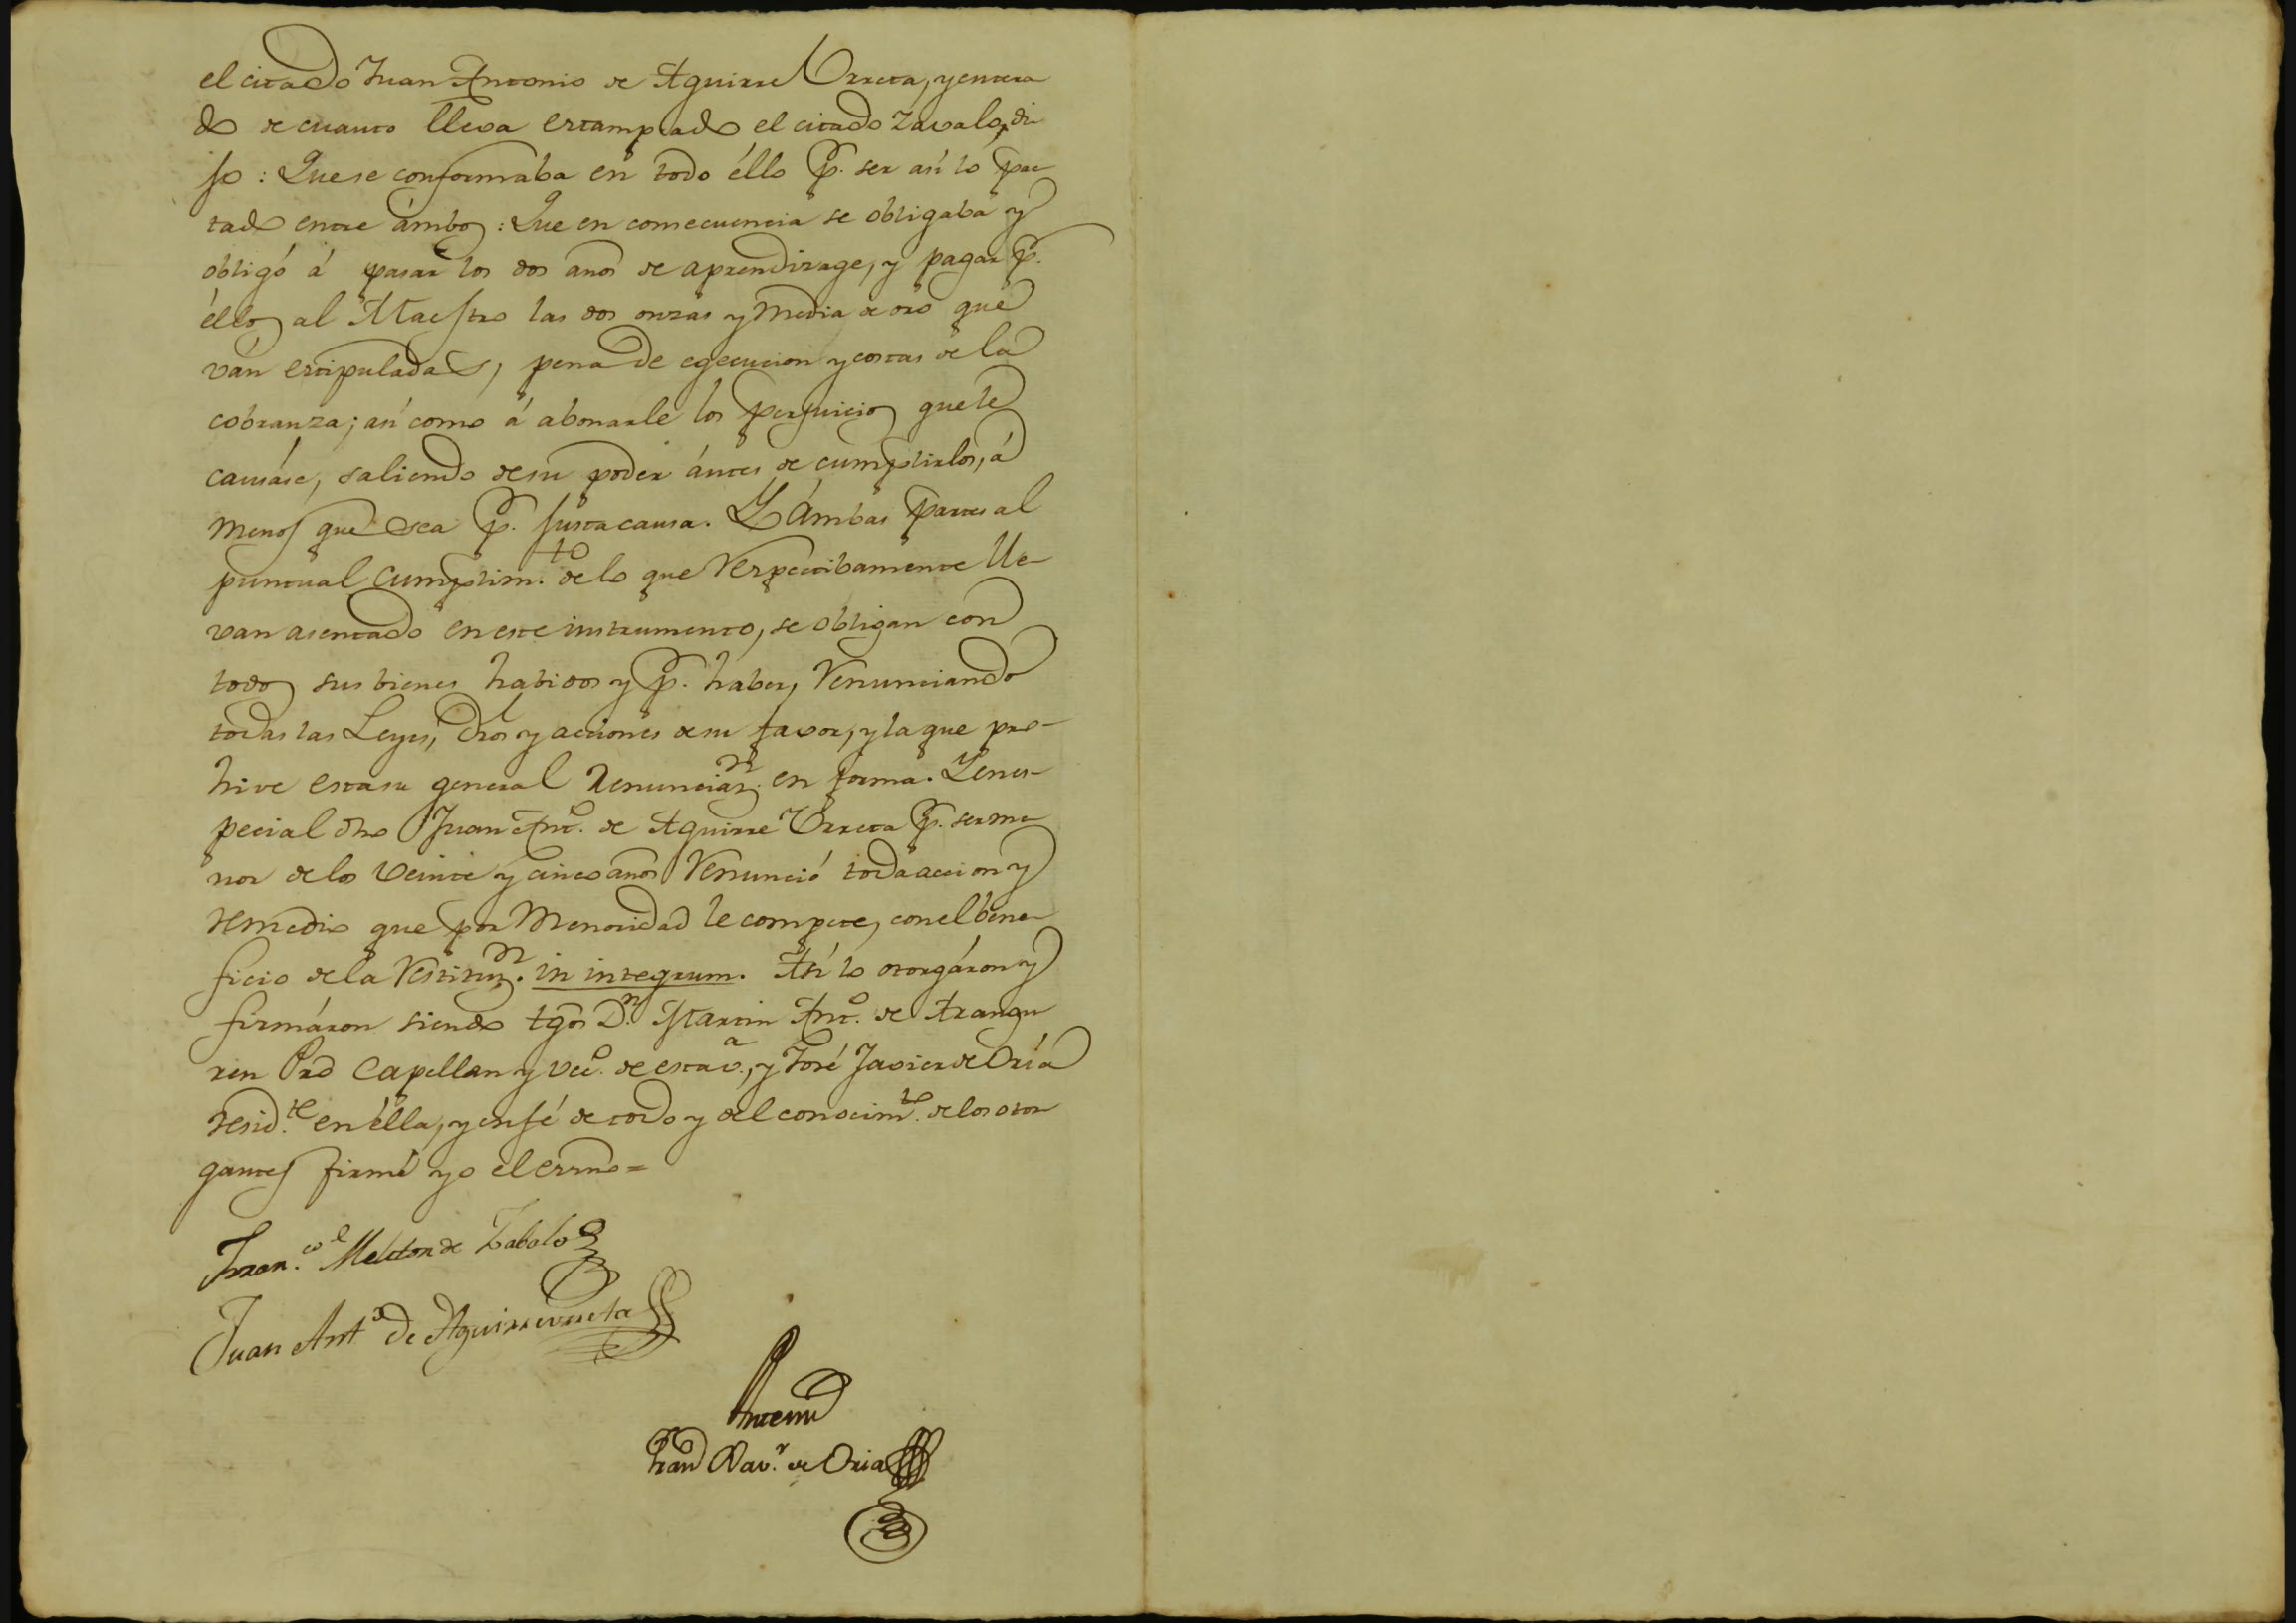 el citado Juan Antonio de Aguirre Urreta, y entera
do de cuanto lleva estampado el citado Zavalo, di
jo: Que se conformaba en todo éllo p.r ser así lo pac
tado entre ámbos: Que en consecuencia se obligaba y
obligó á pasar los dos años de aprendizage, y pagar p.r
éllos al Maestro las dos onzas y media de oro que
ván estipuladas, pena de egecucion y costas de la
cobranza; así como á abonarle los perjuicios que le
causáse, saliendo de su poder ántes de cumplirlos, á
menos que sea p.r justa causa. Y ámbas partes al
puntual cumplim.to de lo que respectibamente lle-
van asentado en este instrumento, se obligan con
todos sus bienes habidos y p.r haber, renunciando
todas las Leyes, dros y acciones de su favor, y la que pro-
hive esta su general renunciaz.n en forma. Y en es-
pecial dho Juan Ant.o de Aguirre Urreta p.r ser me
nor de los veinte y cinco años renunció toda accion y
remedio que por menoridad le compete, con el bene
ficio de la restituz.n in integrum. Así lo otorgáron y
firmáron siendo tgos D.n Martin Ant.o de Arangu
ren Pro Capellan y vec.o de esta v.a, y José Javier de Oria
resid.te en élla, y en fé de todo y del conocim.to de los otor
gantes firmé yo el essno=
Fran.co Meliton de Zabalo
Juan Ant.o de Aguirreurreta
Ante mi
Fran.co Xav.r de Oria